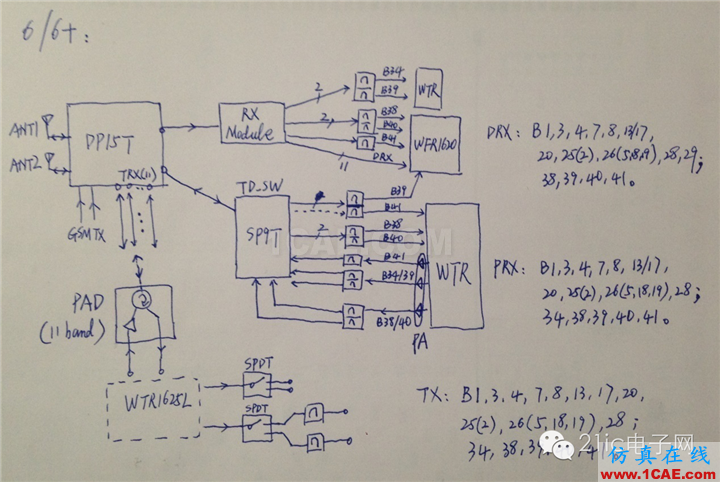 6/6+:
ANT1
ANT2
DP15T
TRX(11)
GSMTX
PAD
(11 band)
WTR1625L
SPDT
SPDT
RX
Module
2
B34
B39
WTR
2
B38
B40
B41
11
DRX
WFR1620
TD_SW
SP9T
B39
B41
2
B38
B40
B41
B34/39
B38/40
PA
WTR
DRX: B1,3,4,7,8,13/17,
20,25(2),26(5,18,9),28,29;
38,39,40,41.
PRX: B1,3,4,7,8,13/17,
20,25(2),26(5,18,19),28;
34,38,39,40,41.
TX: B1,3,4,7,8,13,17,20,
25(2),26(5,18,19),28;
34,38,39
1CAE.COM
21ic电子网
仿真在线
www.1CAE.com